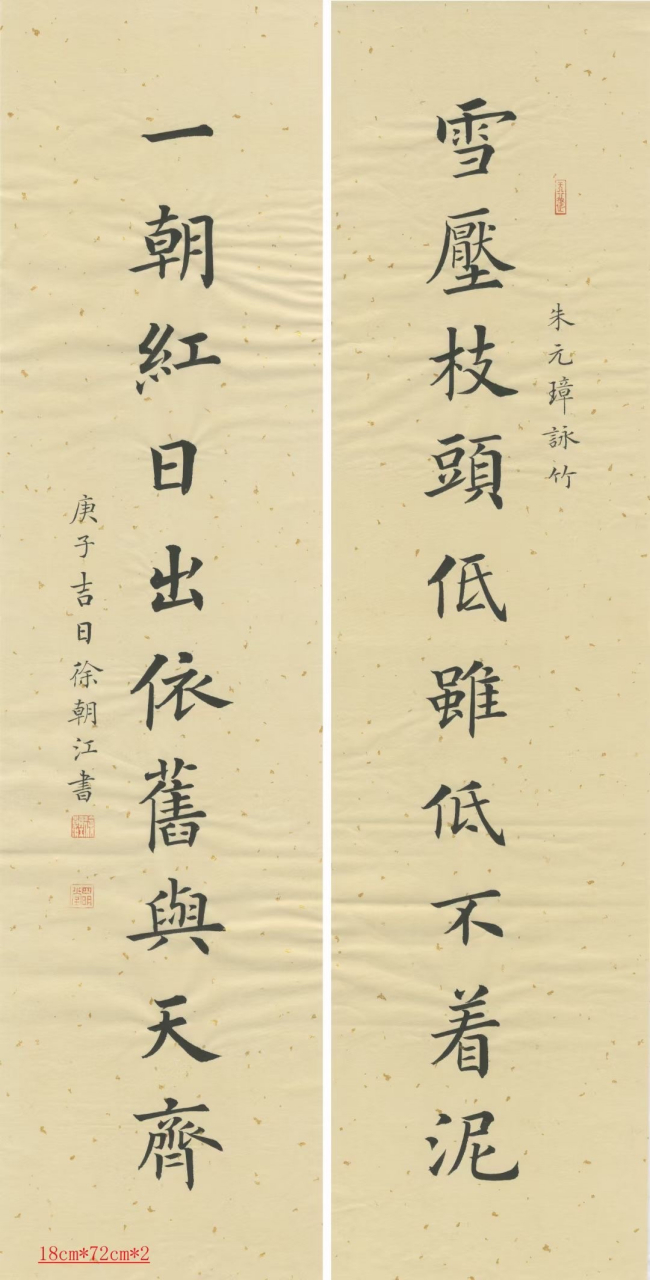 朱元璋詠竹
雪壓枝頭低雖低不着泥
一朝紅日出依舊與天齊
庚子吉日徐朝江書
18cm*72cm*2